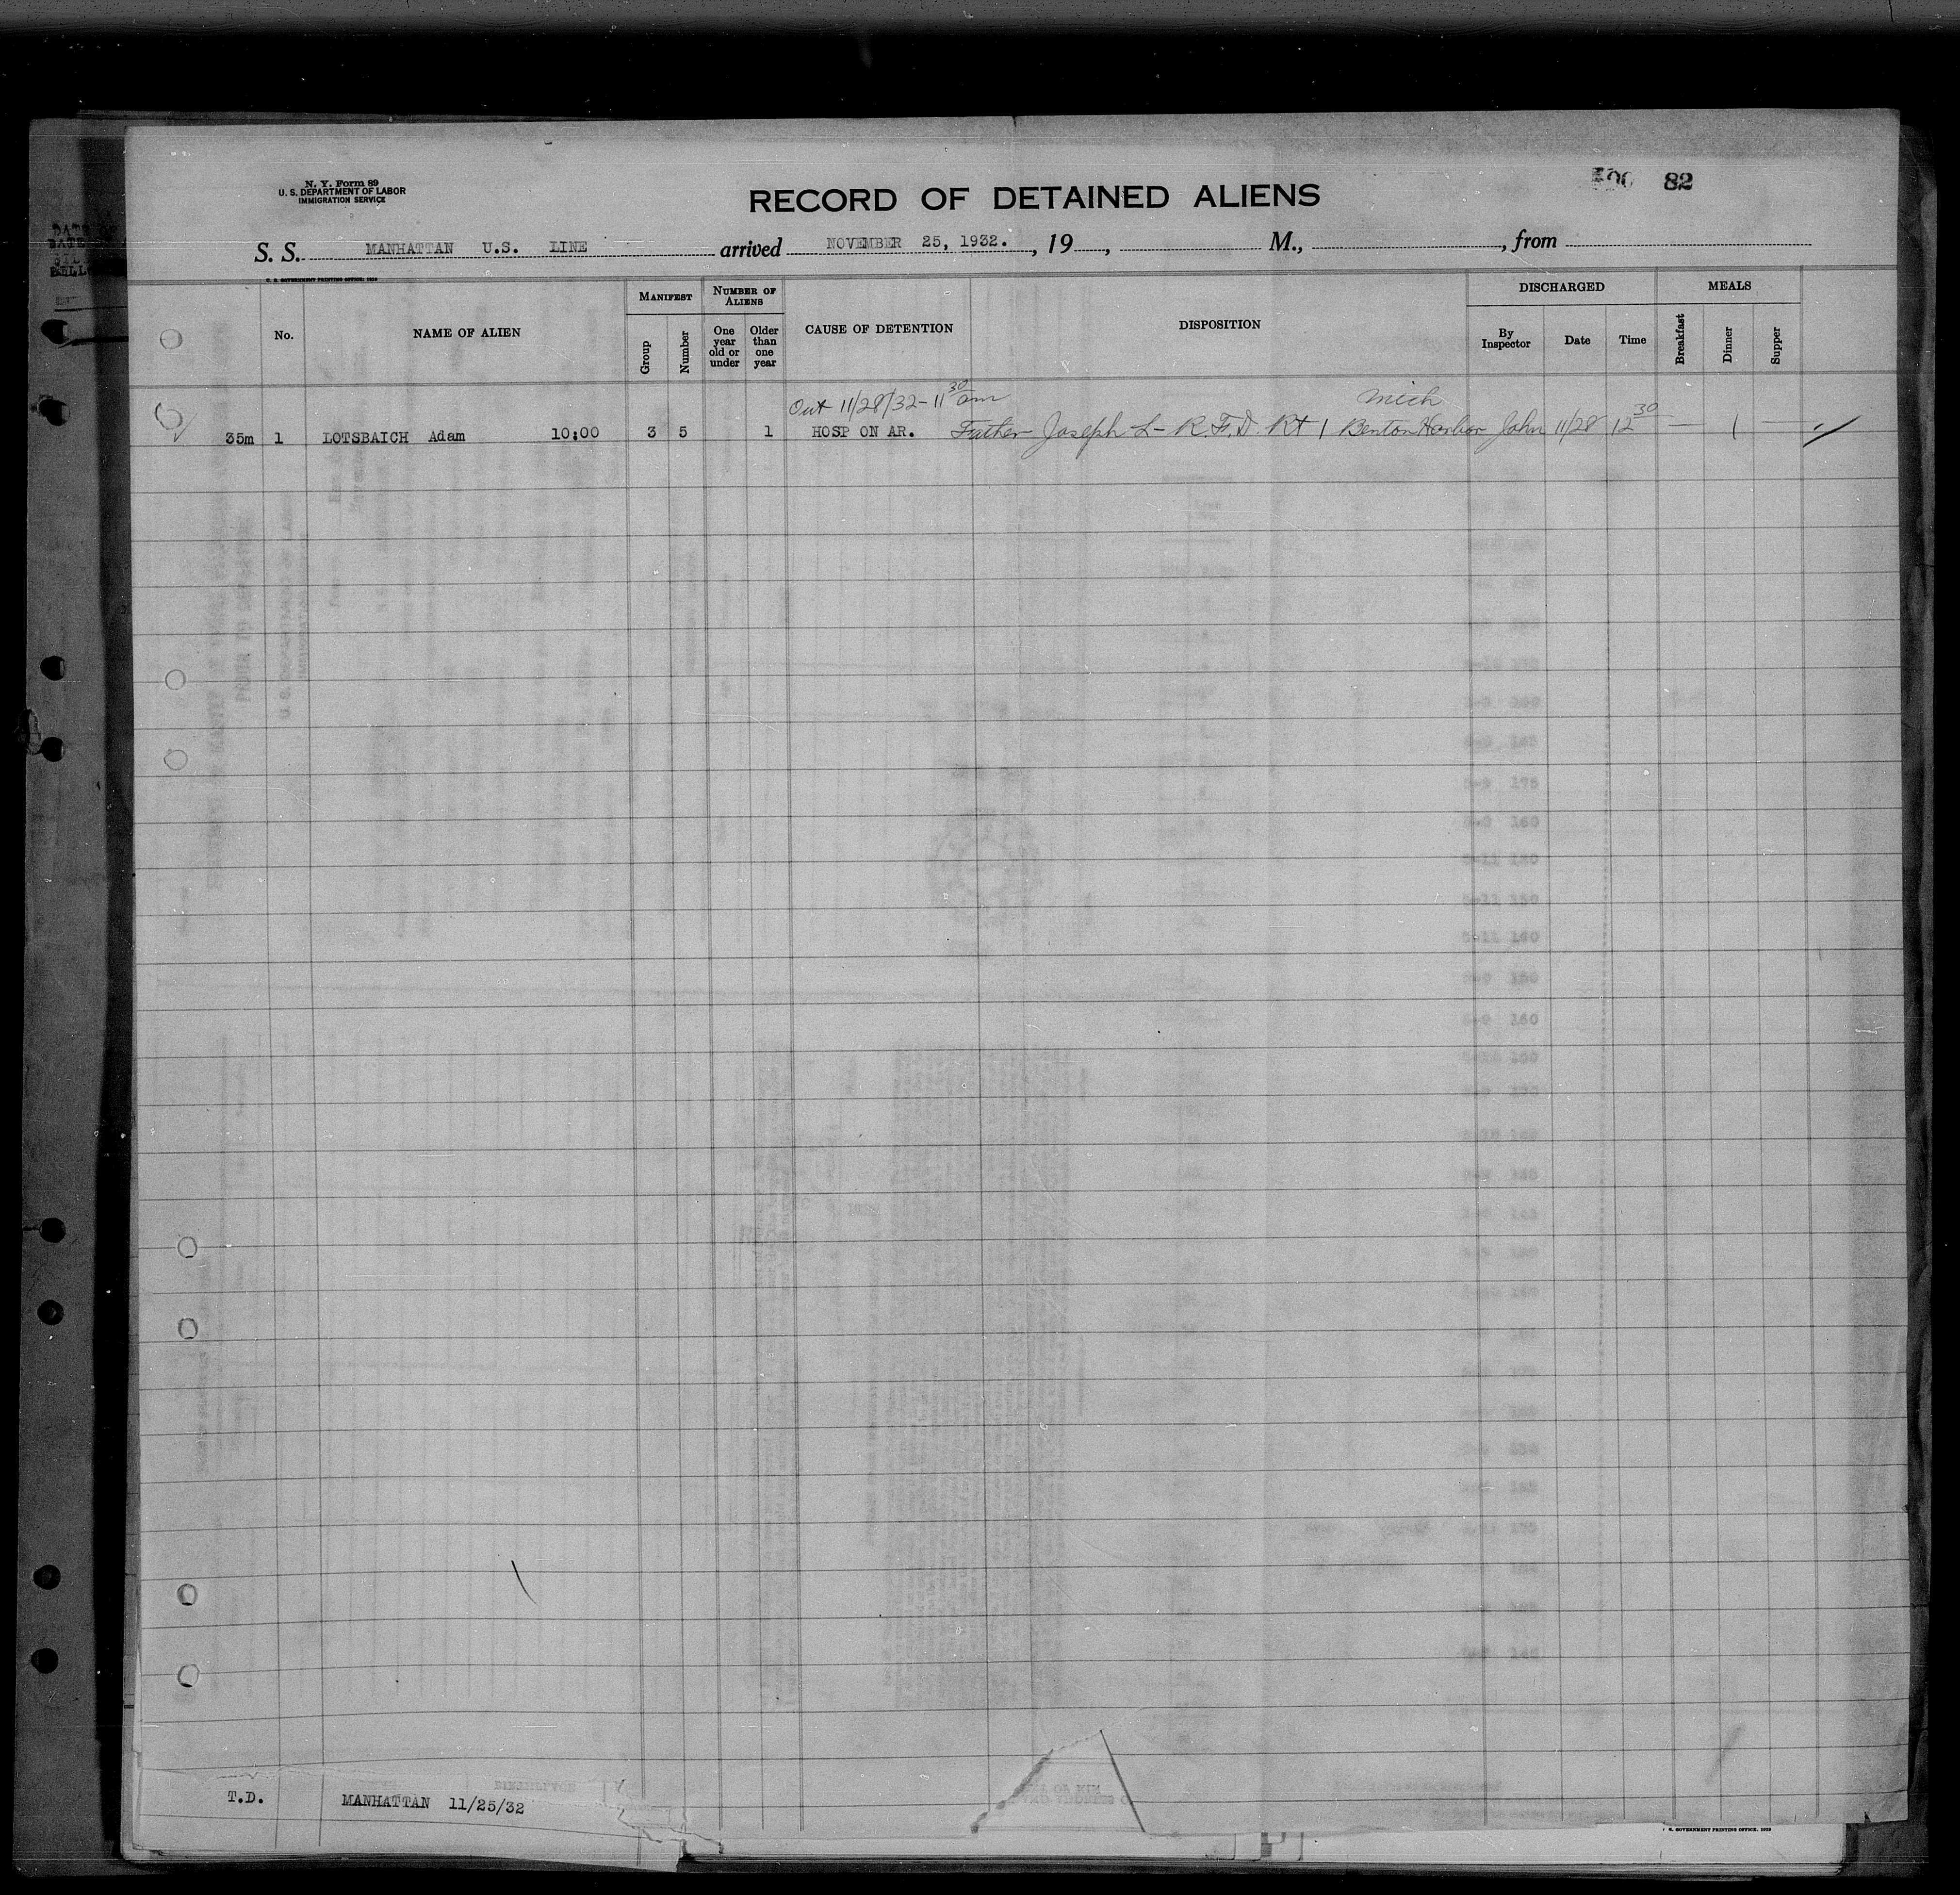 N. Y. Form 89
U. S. DEPARTMENT OF LABOR
IMMIGRATION SERVICE
RECORD OF DETAINED ALIENS
82
S. S. MANHATTAN U.S. LINE arrived NOVEMBER 25, 1932. , 19 , M., , from
U. S. GOVERNMENT PRINTING OFFICE: 1929
No.
NAME OF ALIEN
MANIFEST
Group
Number
NUMBER OF ALIENS
One year old or under
Older than one year
CAUSE OF DETENTION
DISPOSITION
DISCHARGED
By Inspector
Date
Time
MEALS
Breakfast
Dinner
Supper
Out 11/28/32 - 11 30 am
Mich
35m 1 LOTSBAICH Adam 10:00 3 5 1 HOSP ON AR. Father - Joseph L - R.F.D. Rt 1 Benton Harbor John 11/28 12 30 — 1 —
T.D. MANHATTAN 11/25/32